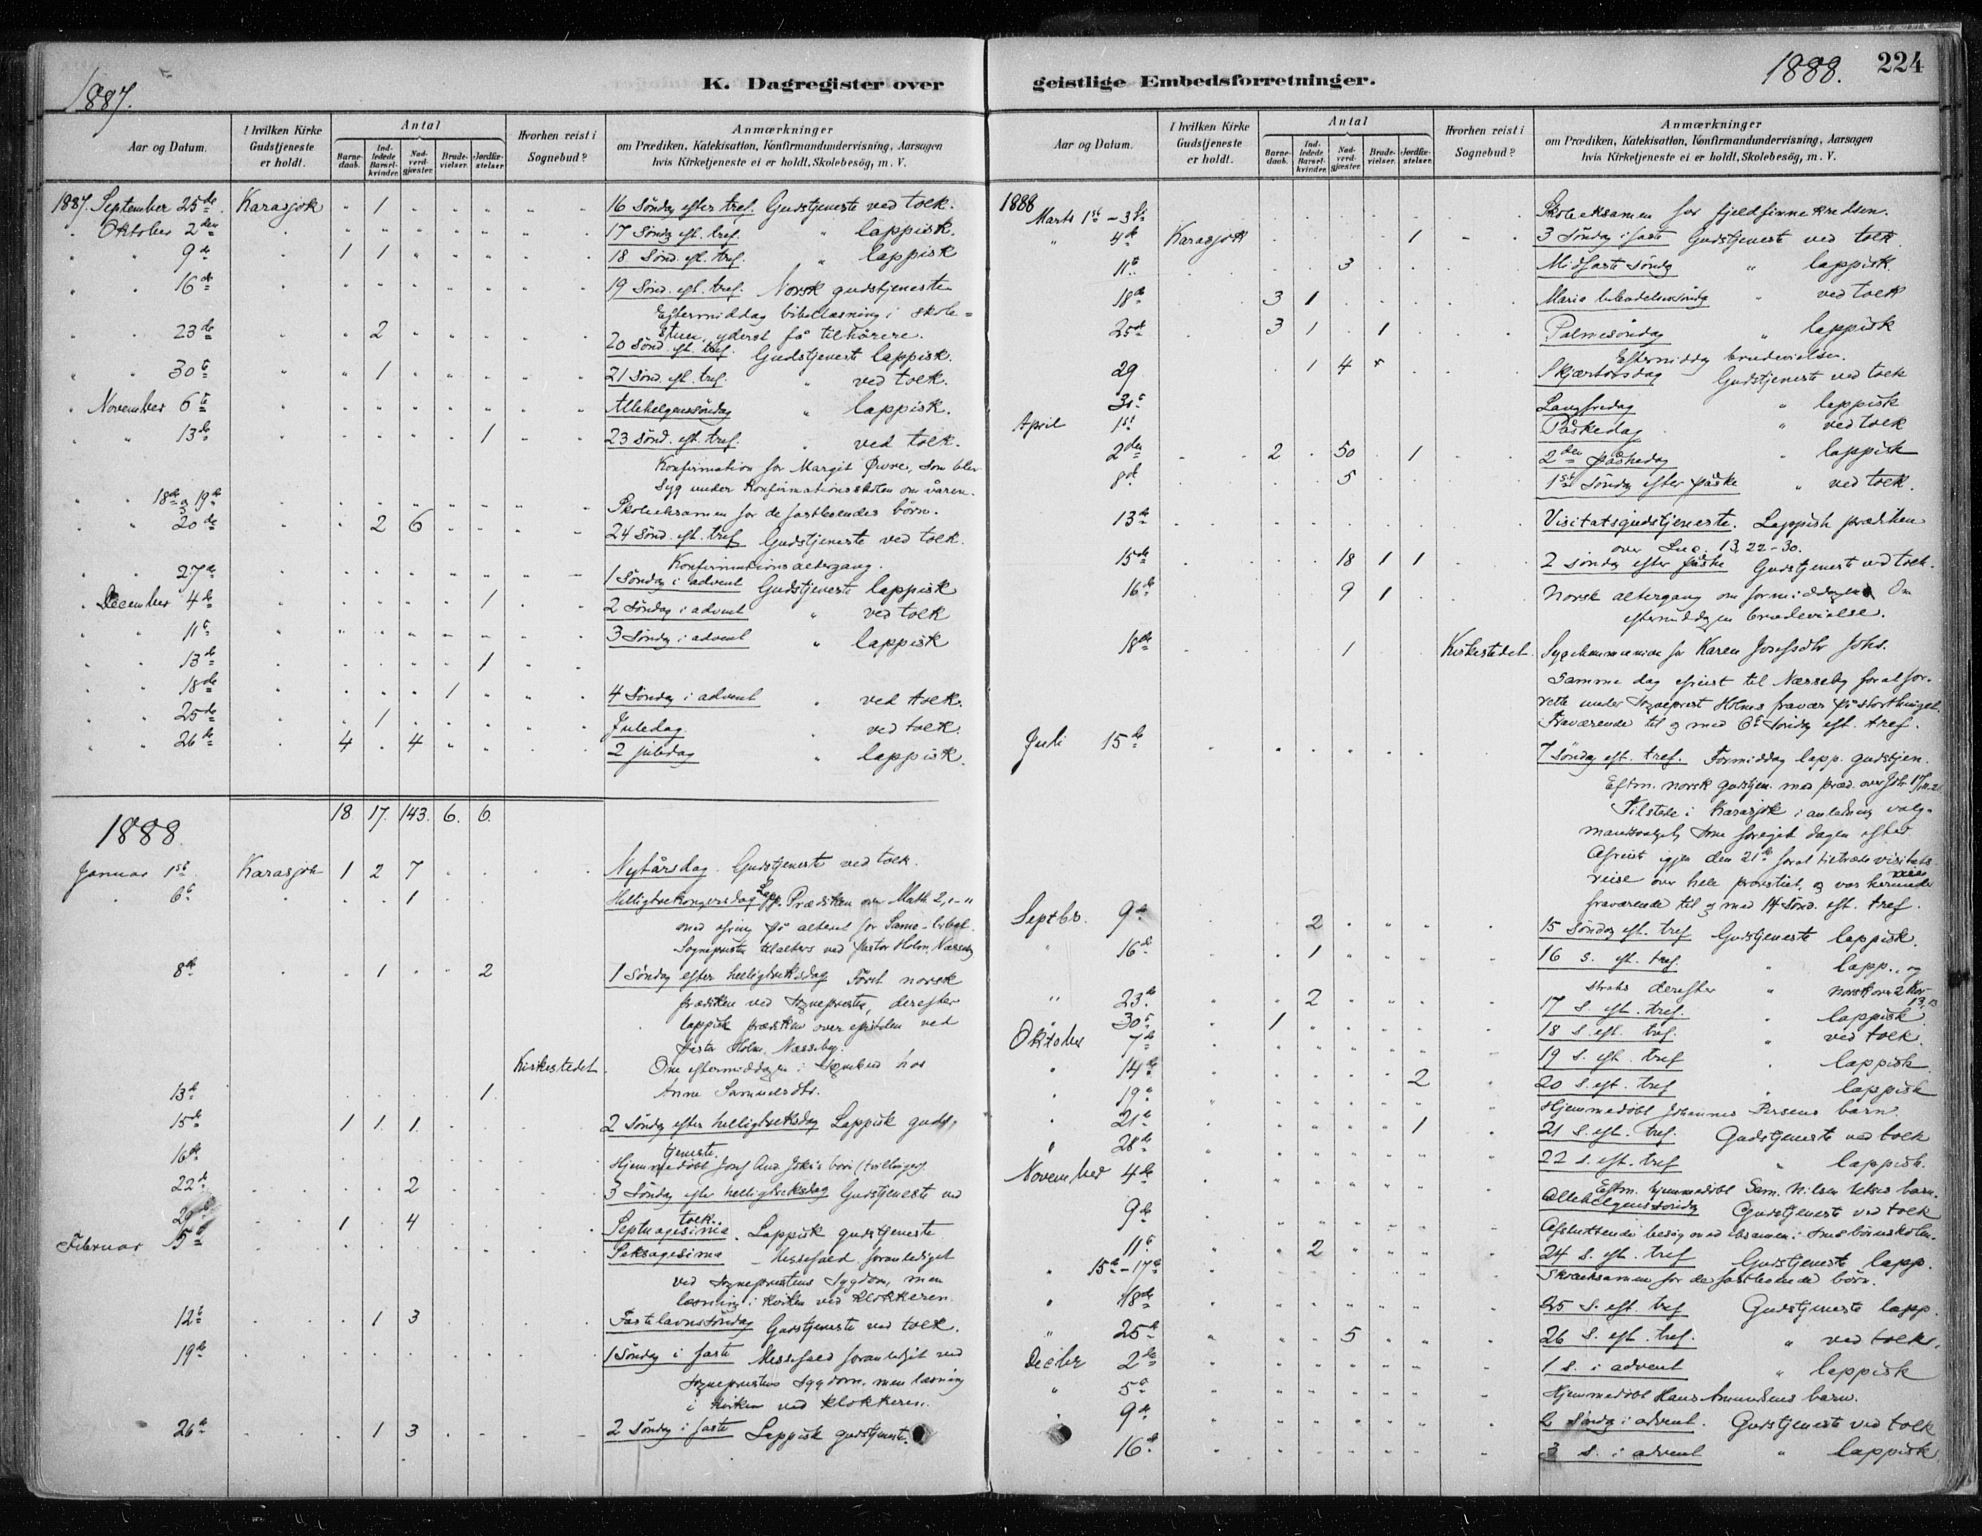 1887.
K. Dagregister over
Aar og Datum.
I hvilken Kirke Gudstjeneste er holdt.
Antal
Barnedaab.
Indledede Barselkvinder.
Nadverdgjæster.
Brudevielser.
Jordfæstelser.
Hvorhen reist i Sognebud?
Anmærkninger
om Prædiken, Katekisation, Konfirmandundervisning, Aarsagen
hvis Kirketjeneste ei er holdt, Skolebesøg, m. V.
1887. September 25de Karasjok " 1 " " " " 16 Søndag efter tref. Gudstjeneste ved tolk.
" Oktober 2den " " " " " " 17 Sönd. eft. tref. " lappisk.
" " 9de " 1 1 " " " 18 Sønd. eft. tref. " lappisk
" " 16de " 19 Sønd. eft. tref. Norsk gudstjeneste
Eftermiddag bibellæsning i skole-
stuen, yderst få tilhörere.
" " 23de " " 2 " " " 20 Sønd. eft. tref. Gudstjeneste lappisk.
" " 30te " " 1 " " " 21 Sønd. eft. tref. " ved tolk.
" November 6te " Allehelgenssöndag " lappisk.
" " 13de " " " " " 1 23 Sønd. eft. tref. " ved tolk.
Konfirmation for Margit Øvre, som blev
syg under Konfirmationsskolen om våren.
" " 18de og 19de Skoleeksamen for de fastboendes börn.
" " 20de " " 2 6 " " 24 Sönd. eft. tref Gudstjeneste ved tolk.
Konfirmationsaltergang.
" " 27de 1 Söndag i advent Gudstjeneste lappisk
" December 4de " " " " " 1 2 Søndag i advent " ved tolk
" " 11te " 3 Søndag i advent " lappisk
" " 13de " " " " 1
" " 18de " " " 1 " 4 Søndag i advent " ved tolk.
" " 25de " " 1 " " " Juledag " ved tolk.
" " 26de " 4 " 4 " " 2 juledag " lappisk.
18 17. 143. 6. 6.
1888.
Januar 1ste Karasjok 1 2 7 Nytårsdag. Gudstjeneste ved tolk.
" 6te 1 Helligtrekongersdag Lapp. Prædiken over Math 2,
med ofring på alteret for Same-bibel.
Sognepresten tilalters ved pastor Holm, Næsseby
8de 1 2 1 Søndag efter helligtrekdag Först norsk
prædiken ved sognepresten, derefter
lappisk prædiken over epistelen ved
Pastor Holm, Næsseby.
Kirkestedet. Om eftermiddagen i sognebud hos
Anne Samuelsdtr.
13de 1
15de 1 1 1 2 Søndag efter helligtrekdag Lappisk guds-
tjeneste.
16de Hjemmedøbt Josef And. börn (tvillinger).
22de 2 3 Søndag efter helligtrekdag Gudstjeneste ved
tolk.
29de 1 4 Septuagesima. Lappisk gudstjeneste
Februar 5te Seksagesima - Messefald foranlediget
ved Sogneprestens sygdom, men
læsning i kirken ved klokkeren.
12te 1 3 Fastelavnssöndag Gudstjeneste ved tolk.
19de 1 Söndag i faste Messefald foranlediget ved
Sogneprestens sygdom, men læsning
i Kirken ved klokkeren.
26de 1 3 2 Söndag i faste Lappisk gudstjeneste.
geistlige Embedsforretninger.
1888. 224
Aar og Datum.
I hvilken Kirke Gudstjeneste er holdt.
Antal
Barnedaab.
Indledede Barselkvinder.
Nadverdgjæster.
Brudevielser.
Jordfæstelser.
Hvorhen reist i Sognebud?
Anmærkninger
om Prædiken, Katekisation, Konfirmandundervisning, Aarsagen
hvis Kirketjeneste ei er holdt, Skolebesøg, m. V.
1888
Marts 1ste - 3die Skoleeksamen for fjeldfinnekredsen.
" 4de Karasjok 1 3 Søndag i faste Gudstjeneste ved tolk
11te 3 Midfaste Söndag " lappisk.
18de 3 1 Maria bebudelsessöndag " ved tolk
25de 3 1 1 Palmesöndag " lappisk
Eftermiddag brudevielse.
29 1 4 Skjærtorsdag Gudstjeneste ved tolk
30te Langfredag " lappisk
April 1ste Påskedag " ved tolk
2den 2 50 1 2den påskedag " lappisk
8de 5 1ste Söndag efter påske " ved tolk.
13de Visitatsgudstjeneste. Lappisk prædiken
over Luc. 13, 22-30.
15de 18 1 1 2 Søndag efter påske Gudstjeneste ved tolk.
16de 9 1 Norsk altergang om formiddagen. Om
eftermiddagen brudevielse.
18de 1 Kirkestedet. Sygekommunion for Karen Josefsdtr
Samme dag afreist til Næsseby for at for-
rette under Sogneprest Holms fravær på storthinget.
Fraværende til og med 6te Søndag eft. tref.
Juli 15de 7 Søndag eft. tref. Formiddag lapp. gudstjen.
Eftm. norsk gudstjen. med præd. over Joh. 17,
Tilstede i Karasjok i anledning valg-
mandsvalget, som foregik dagen efter
Afreist igjen den 21de for at tiltræde visitats-
reise over hele provstiet, og var herunder
fraværende til og med 14 Sønd. eft. tref.
Septbr. 9de 2 15 Søndag eft. tref Gudstjeneste lappisk.
" 16de 1 16 S. eft. tref. " lapp., og
straks derefter " norsk over 2 Kor. 13,
" 23de 2 17 S. eft. tref. " lappisk
" 30te 1 18 S. eft. tref. " ved tolk.
Oktober 7de 19 S. eft. tref " lappisk.
" 14de 2 20 S. eft. tref " lappisk
" 19de Hjemmedøbt Johannes Persens barn.
" 21de 1 21 S. eft. tref. Gudstjeneste ved tolk
" 28de 22 S. eft. tref " lappisk.
Eftm. hjemmedøbt Sam. Nilsen Utsis barn.
November 4de Allehelgenssöndag Gudstjeneste ved tolk
9de Afsluttende besøg med eksamen i
11te 2 24 S. eft. tref Gudstjeneste lapp.
" 15de - 17de Skoleeksamen for de fastboende börn.
" 18de 25 S. eft. tref Gudstjeneste lapp.
" 25de 5 26 S. eft. tref. " ved tolk.
Decbr 2den 1 S. i advent " lappisk
" 5te Hjemmedøbt Hans Amundsens barn.
" 9de 2 Søndag i advent. Gudstjeneste ved tolk
16de 3 S. i advent " lappisk